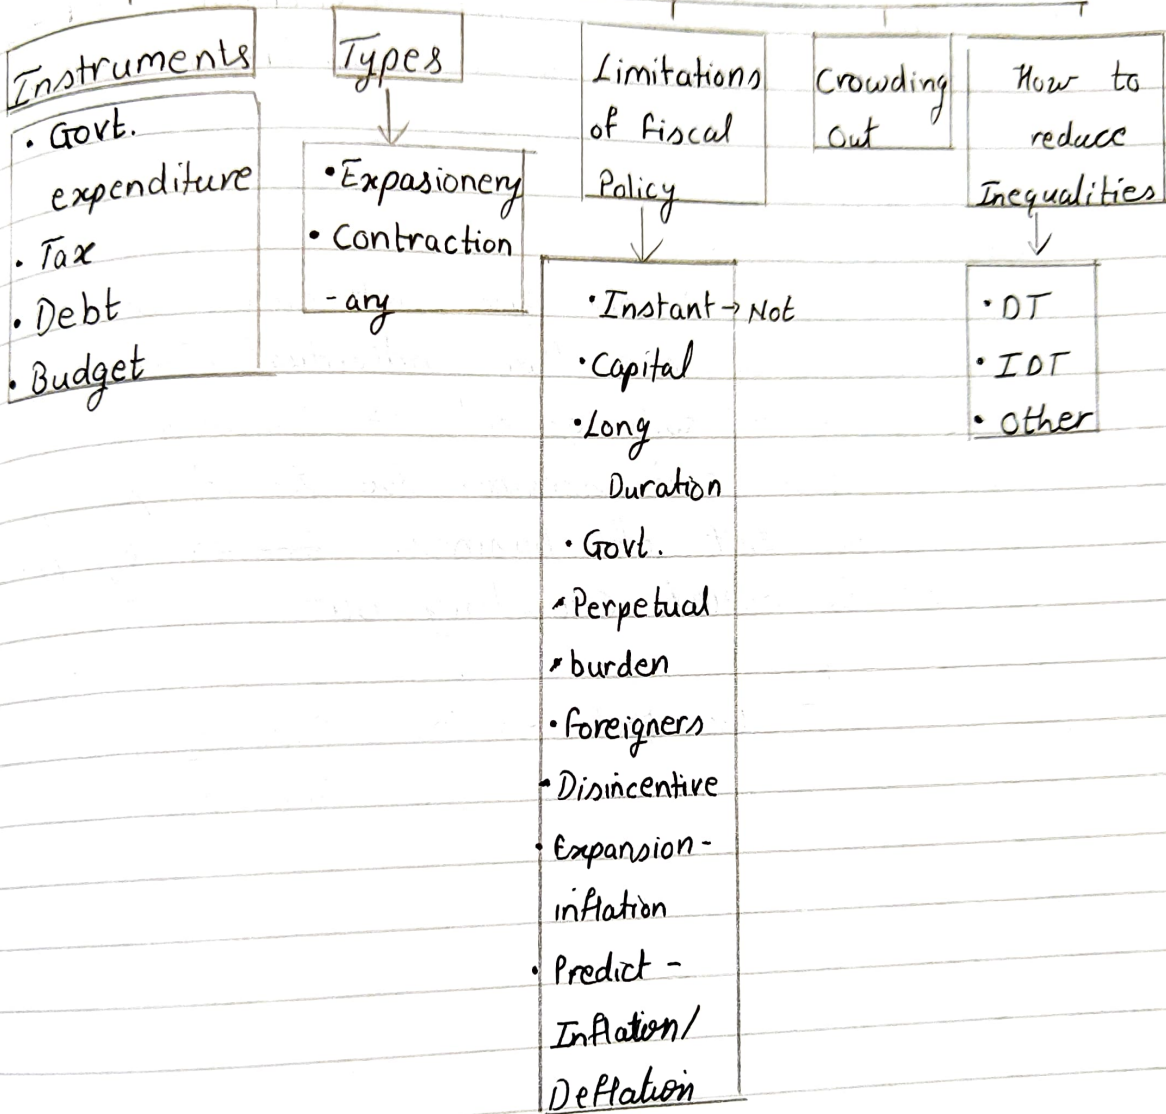 Instruments
• Govt.
expenditure
• Tax
• Debt
• Budget
Types
• Expasionery
• Contraction
- ary
Limitations
of Fiscal
Policy
• Instant → Not
• Capital
• Long
Duration
• Govt.
• Perpetual
• burden
• Foreigners
• Disincentive
• Expansion -
inflation
• Predict -
Inflation/
Deflation
Crowding
Out
How to
reduce
Inequalities
• DT
• IDT
• Other